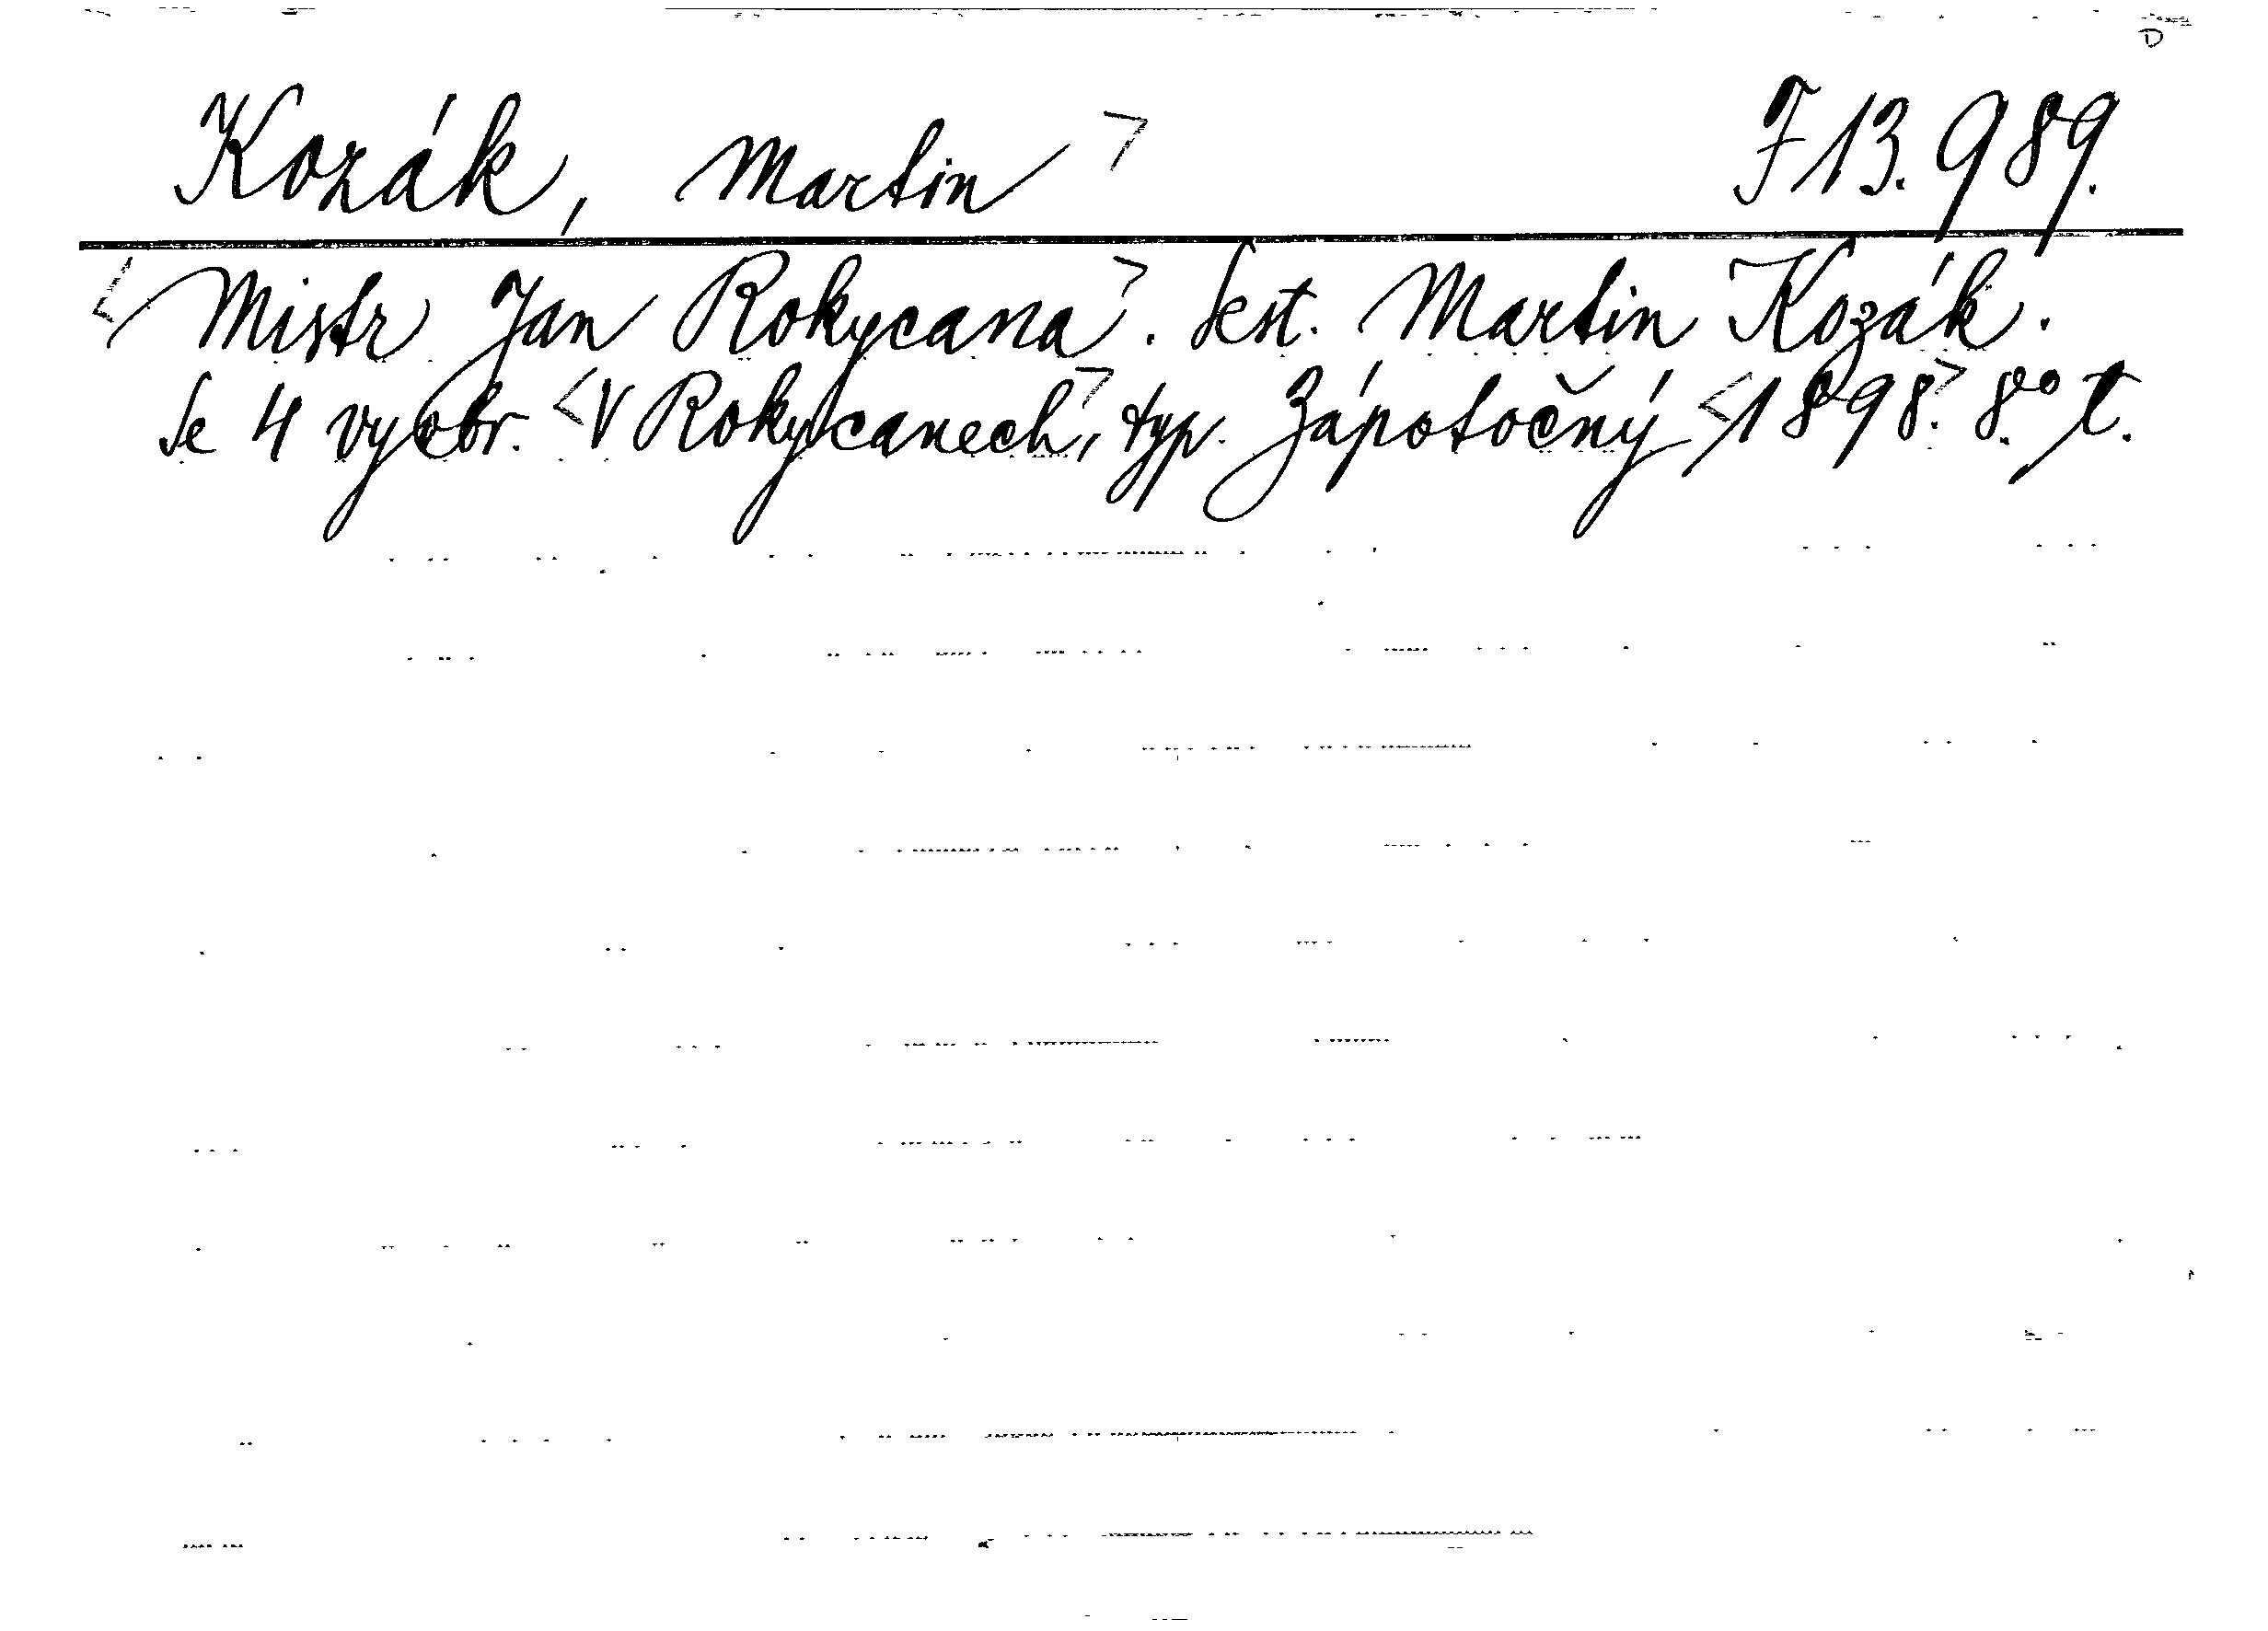 Kozák, Martin > F 13.989.
<Mistr Jan Rokycana>. Sest. Martin Kozák.
Se 4 vyobr. <V Rokycanech>, typ. Zápotočný <1898>. 8.° t.